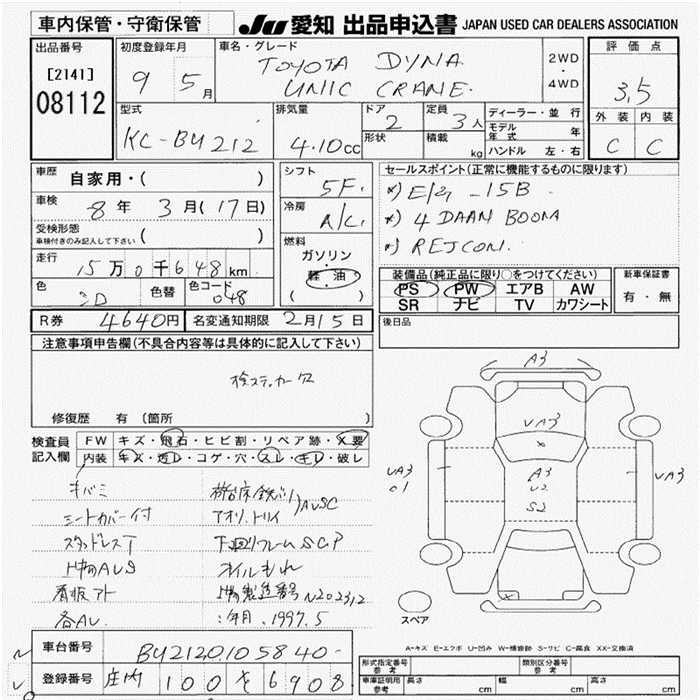 車内保管・守衛保管 JU 愛知 出品申込書 JAPAN USED CAR DEALERS ASSOCIATION
出品番号 [2141] 08112
初度登録年月 9 5月
車名・グレード TOYOTA DYNA
UNIC CRANE
2WD・4WD
評価点 3.5
外装 内装
C C
型式 KC-BU212
排気量 4.10cc
ドア 2
形状
定員 3人
積載 kg
ディーラー・並行
モデル年式 年
ハンドル 左・右
車歴 自家用・( )
車検 8年 3月(17日)
受検形態 車検付きのみ記入して下さい ( )
走行 15万0千648km
色 色替 色コード 048
シフト 5F
冷房 A/C
燃料 ガソリン・軽油 ( )
セールスポイント(正常に機能するものに限ります)
*) E/G -15B
*) 4 DAAN BOOM
*) REJCON.
装備品(純正品に限り○をつけてください)
PS PW エアB AW
SR ナビ TV カワシート
新車保証書
有・無
R券 4640円 名変通知期限 2月15日
後日品
注意事項申告欄(不具合内容等は具体的に記入して下さい)
検ステッカー欠
修復歴 有 (箇所 )
検査員記入欄 FW キズ・飛石・ヒビ割・リペア跡・X要
内装 キズ・汚レ・コゲ・穴・スレ・キレ・破レ
キバミ
シートカバー付
アオリ、トリイ
AUSC
スタッドレスT
下回リフレームSCP
オイルもれ
看板アト
上物製造番号 N202312
各AU
年月 1997.5
A3
VA3
UA3
01
A3
U2
S2
VA3
スペア
A-キズ E-エクボ U-凹み W-補修跡 S-サビ C-腐食 XX-交換済
車台番号 BU2120105840-
登録番号 庄内 100 を 6908
形式指定番号 参考
類別区分番号 参考
車庫証明用 参考 長さ cm 幅 cm 高さ cm